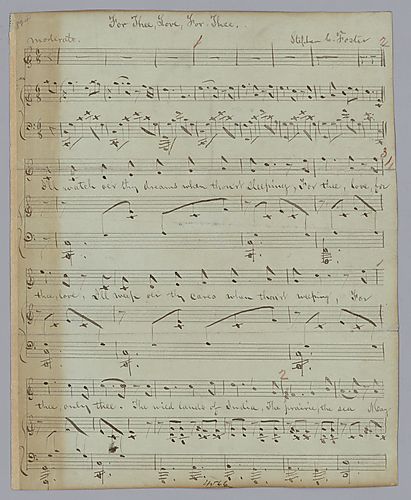 For Thee, Love, For Thee.
moderate.
1
Stephen C. Foster
2
3
I'll watch o'er thy dreams when thou'rt sleeping, For thee, love, for
thee, love; I'll weep o'er thy cares when thou'rt weeping, For
2
thee, only thee. The wild lands of India, The prairie, the sea May